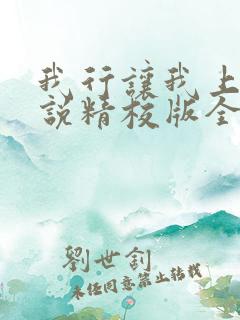 我行讓我上
說精校版全
劉世釗
未經同意禁止轉載